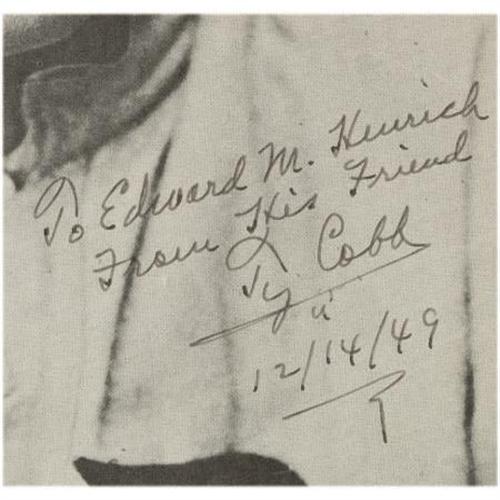 To Edward M. Heinrich
From His Friend
Ty Cobb
12/14/49